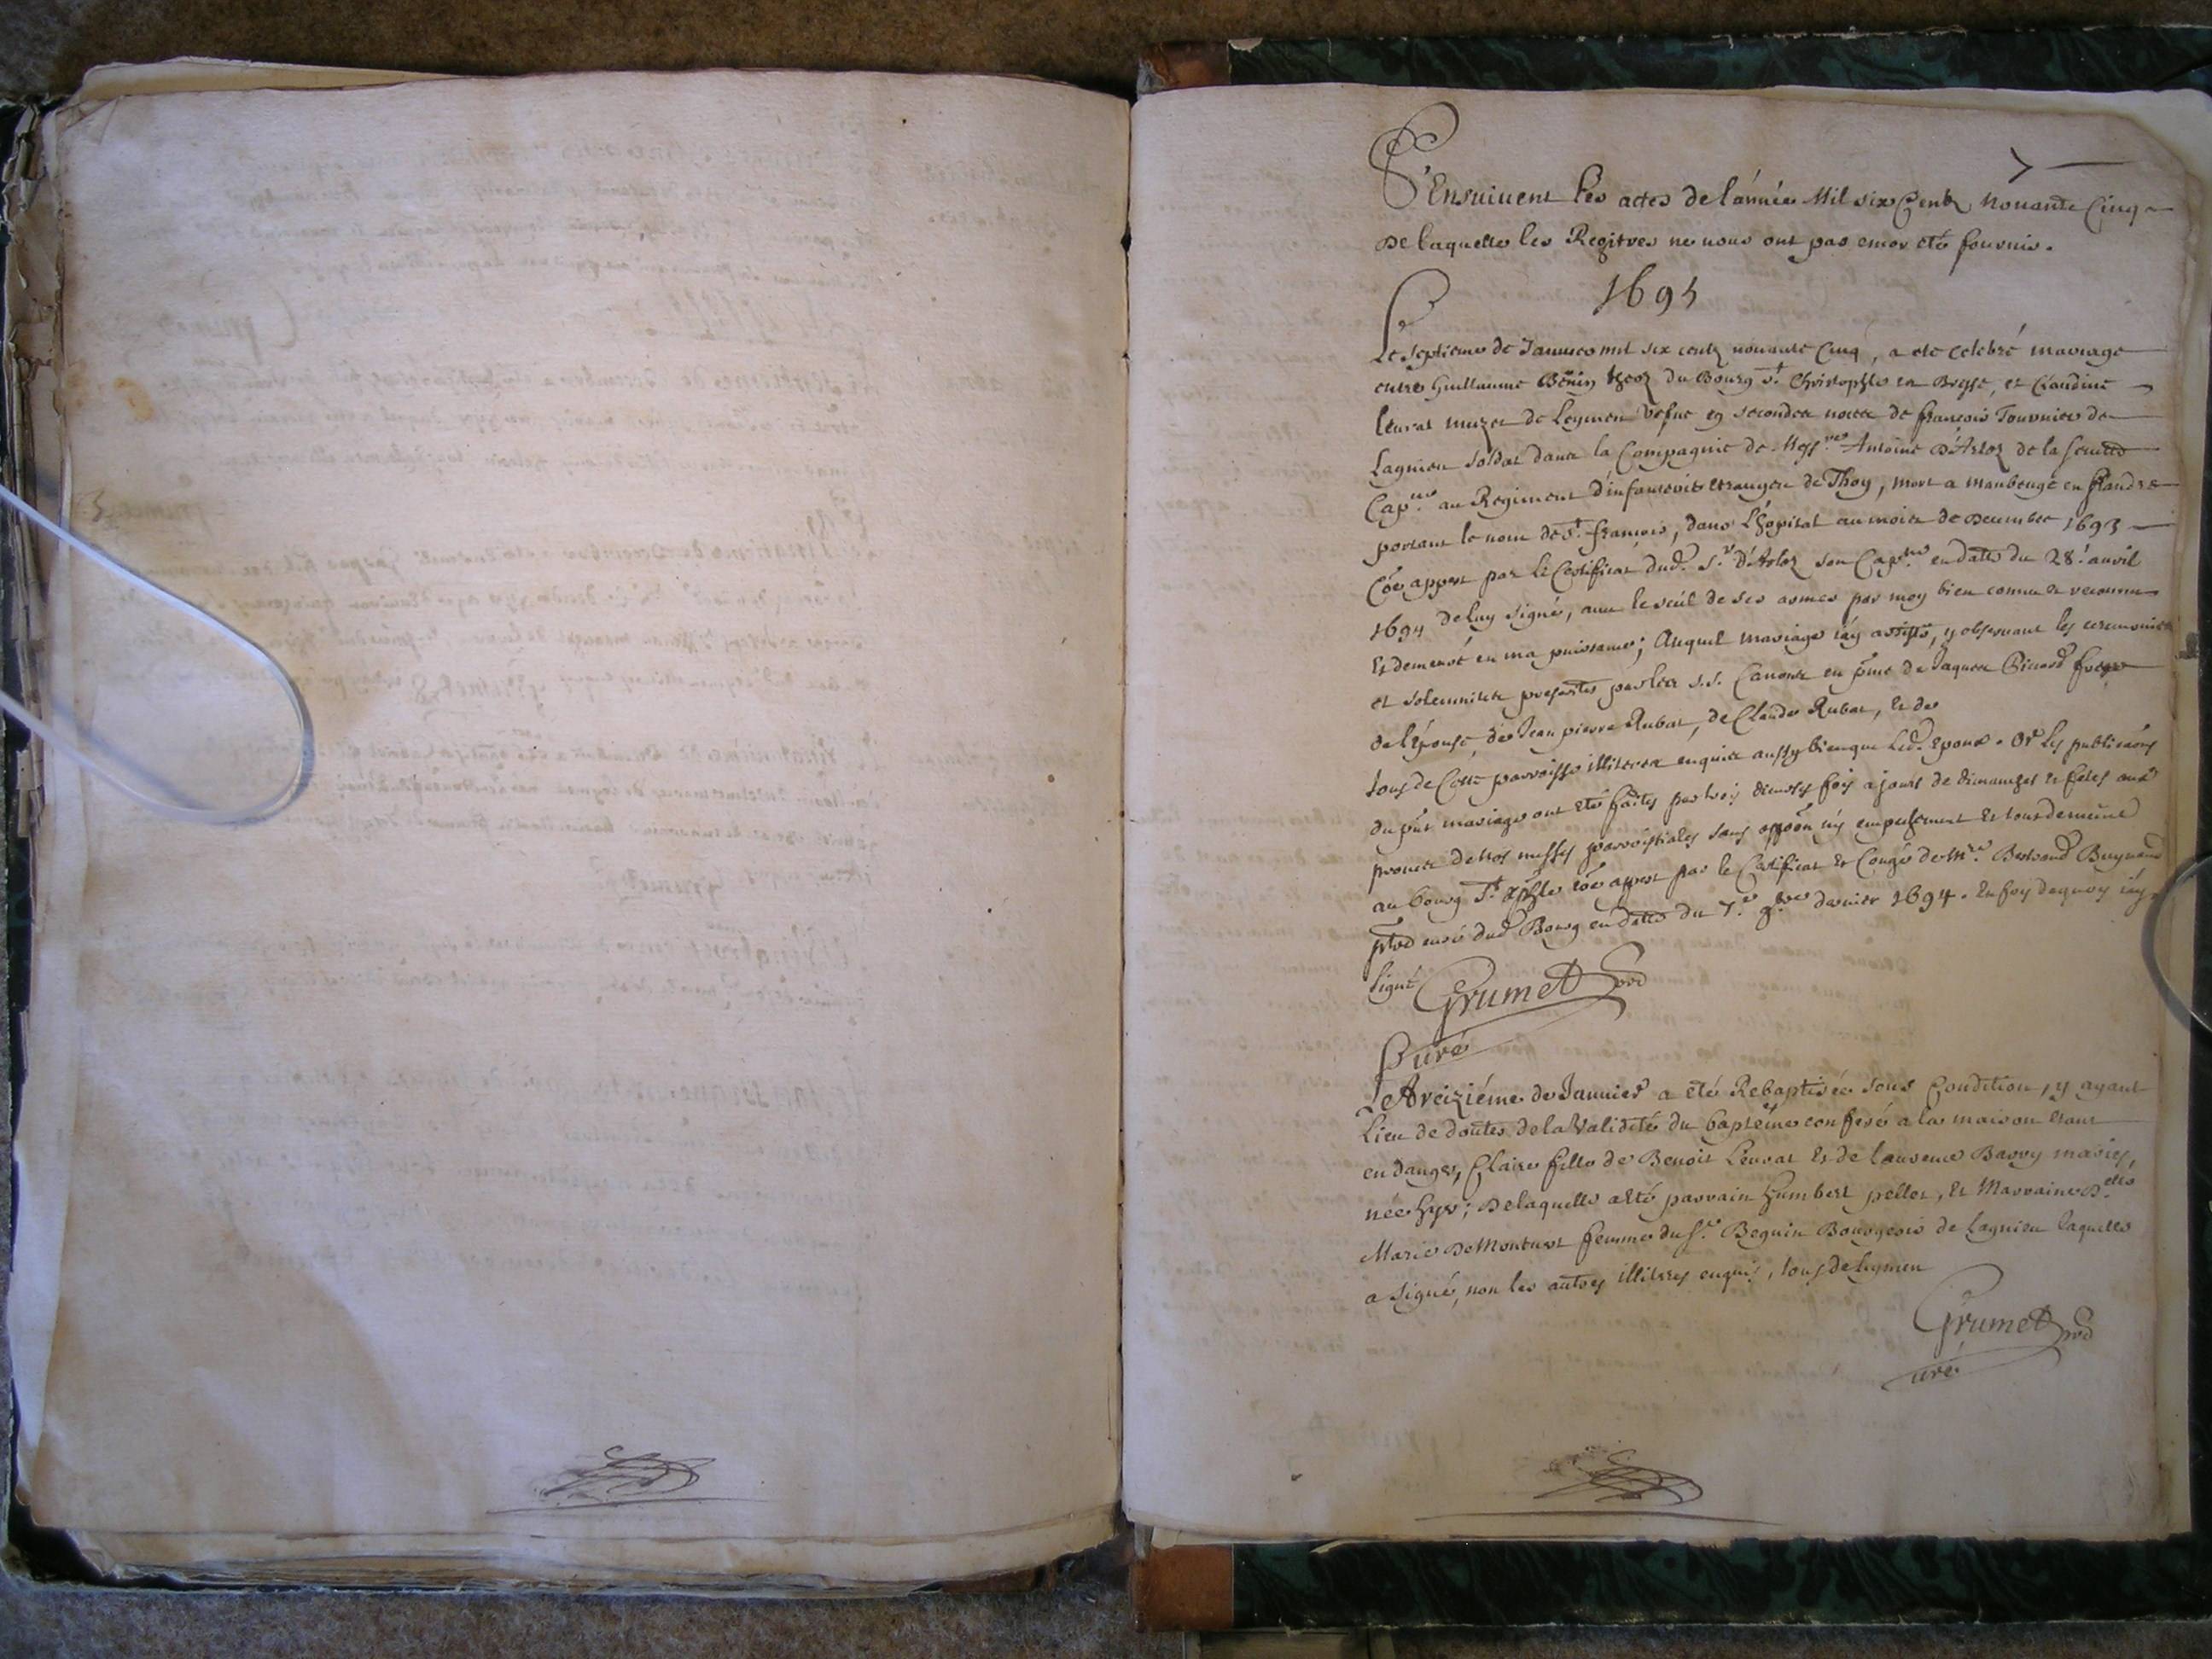 S'Ensuivent les actes de l'année Mil six Cents Nonante Cinq
de laquelle les Regitres ne nous ont pas encor eté fournis.
1695
Le septieme de Janvier mil six cents nonante cinq, a eté celebré mariage
entre Guillaume Benin du Bourg St Christophle en Bresse, et Claudine
leurat de Leymen vefue en secondes noces de françois Tournier de
Lagnieu soldat dans la Compagnie de Messre Antoine D'Arloz de la
Capne au Regiment d'infanterie etrangere de Thoy, mort a Maubeuge en flandre
portant le nom de St françois, dans l'hopital au mois de Decembre 1693
Cõe appert par le Certificat dud. Sr D'Arloz son Capne en date du 28e auril
1694 de luy signé, auec le scéel de ses armes par moy bien connu et reconnu
et demeuré en ma puissance; Auquel mariage i'ay assisté, y obseruant les ceremonies
et solemnitez prescrites par les S.S. Canons en pñce de Jaques frere
de l'Epouse, de Jean pierre Rubat, de Claude Rubat, et de
tous de Cette parroisse illiteres enquis aussy bien que led. Epoux. Or les publicaõns
du pñt mariage ont eté faites par trois diuerses fois a jours de dimanches et fetes aux
prones de nos messes parroissiales sans oppõn ny empeschement et tout de meme
au bourg St Xphle cõe appert par le Certificat et Congé de Mre Bertrand
pbre curé dud Bourg en date du 7e 9bre dernier 1694. En foy de quoy i'ay
signé Grumet
Curé
Le treiziéme de Januier a eté Rebaptisée sous Condition, y ayant
Lieu de doutes de la Validité du baptéme conferé a la maison etant
en danger, Claire fille de Benoit Leurat et de laurence Barry mariés,
née hyer; de laquelle a eté parrain humbert pellet, et Marraine Delle
Marie de Montuert femme du Sr Beguin Bourgeois de Lagnieu laquelle
a signé, non les autres illiteres enquis, tous de Leymen
Grumet
curé